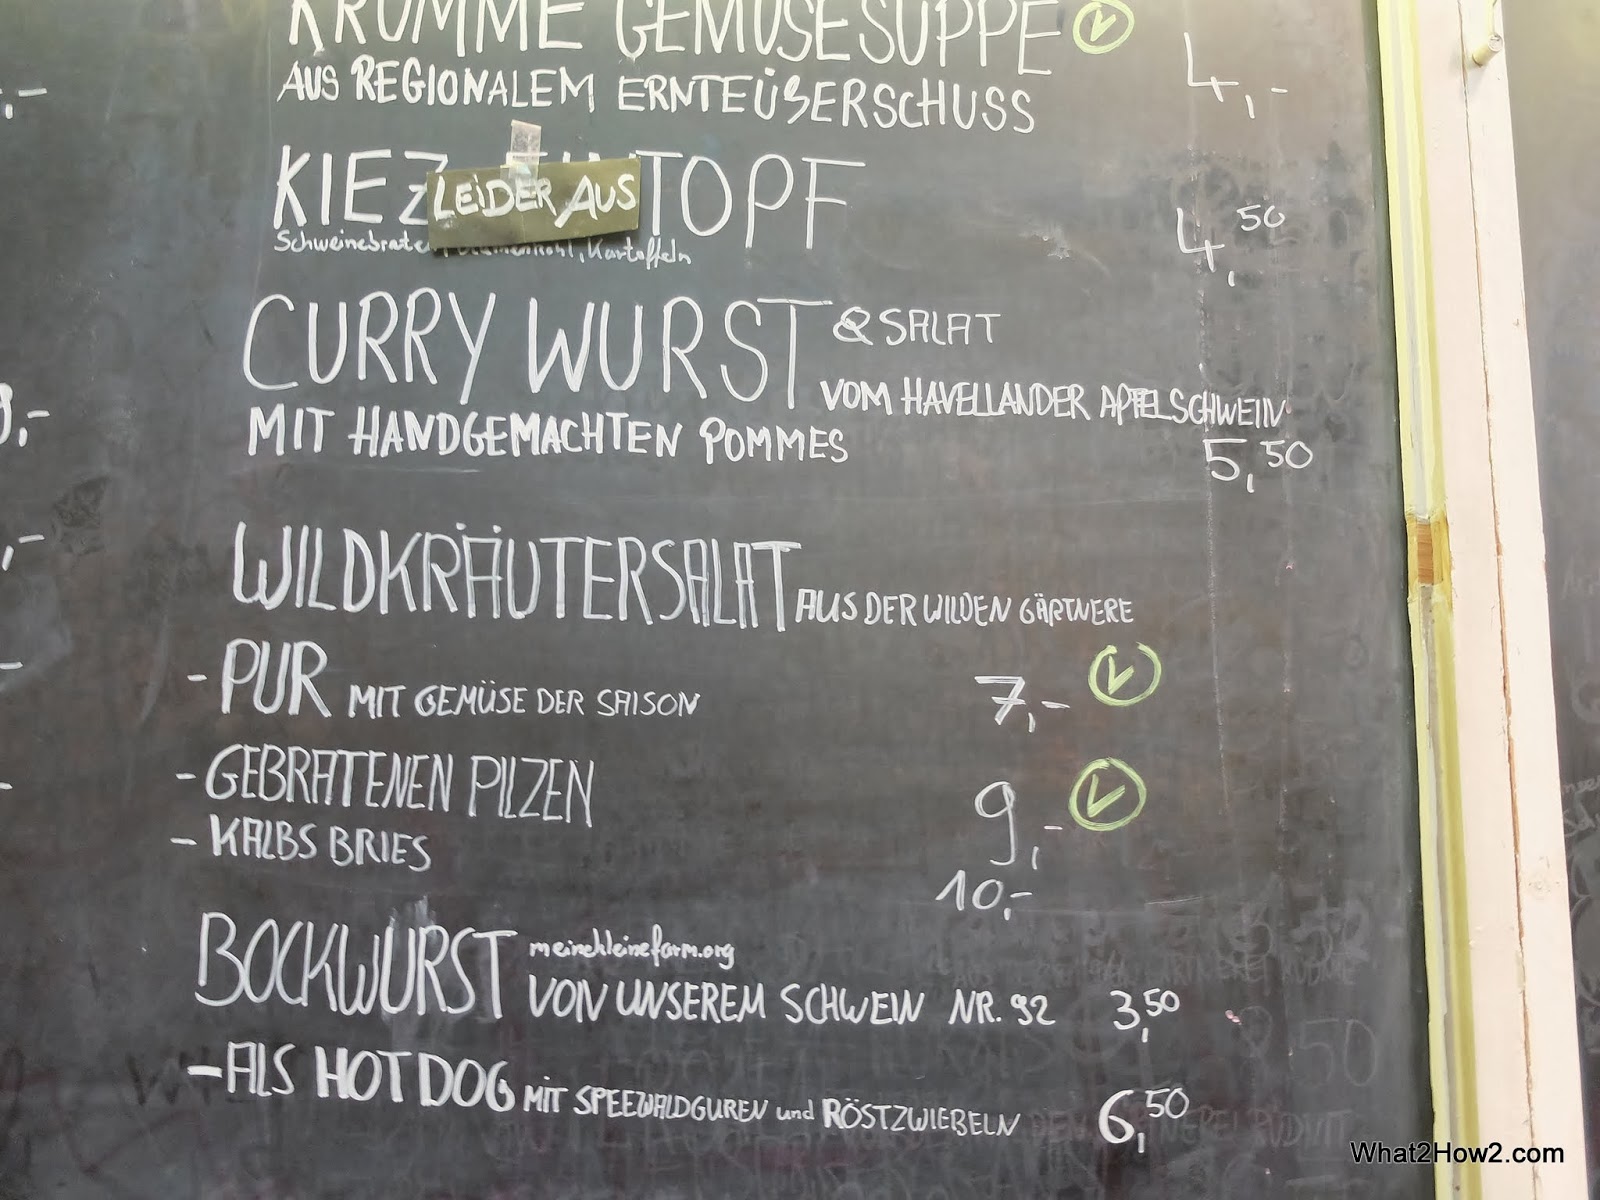 KRUMME GEMÜSESUPPE V 4,-
AUS REGIONALEM ERNTEÜBERSCHUSS
KIEZ TOPF 4,50
LEIDER AUS
Kartoffeln
CURRY WURST & SALAT
VOM HAVELLANDER APFELSCHWEIN
MIT HANDGEMACHTEN POMMES 5,50
WILDKRÄUTERSALAT AUS DER WILDEN GÄRTNERE
- PUR MIT GEMÜSE DER SAISON 7,- V
- GEBRATENEN PILZEN 9,- V
- KALBS BRIES 10,-
BOCKWURST meinekleinefarm.org
VON UNSEREM SCHWEIN NR. 92 3,50
- ALS HOT DOG MIT SPEEWALDGUREN und RÖSTZWIEBELN 6,50
What2How2.com